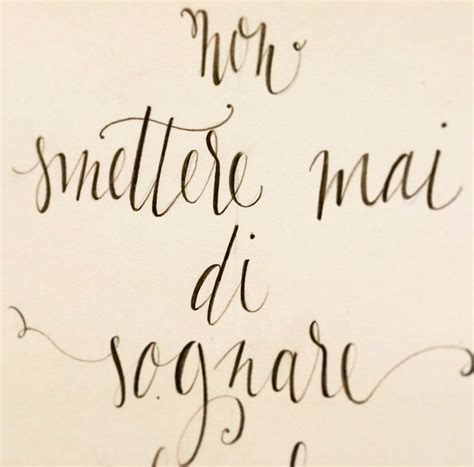 non
smettere mai
di
sognare